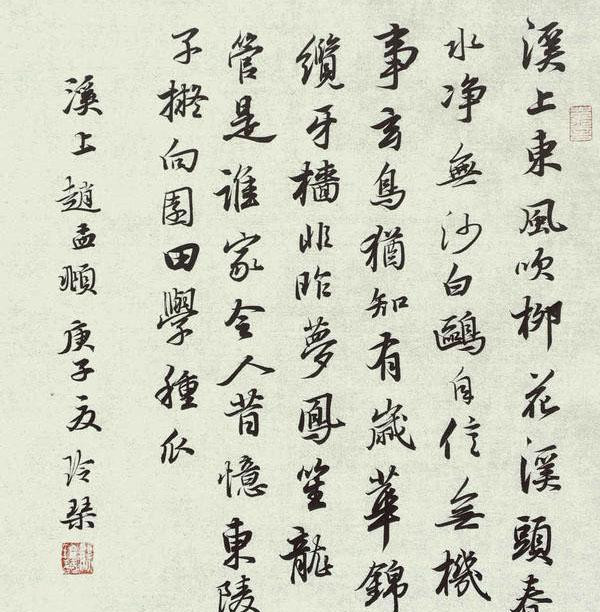 溪上東風吹柳花溪頭春
水净無沙白鷗自信無機
事玄鳥猶知有歲華錦
纜牙檣非昨夢鳳笙龍
管是誰家令人昔憶東陵
子擬向園田學種瓜
溪上 趙孟頫 庚子夏 玲琹